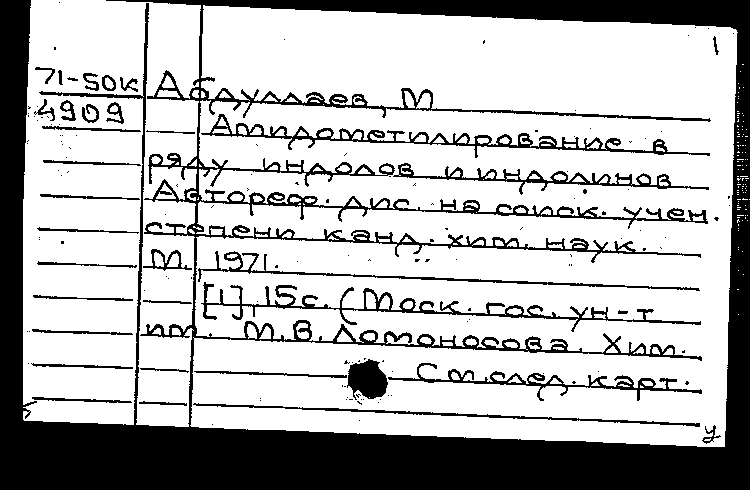 1
71-50к Абдуллаев, М
4909
Амидометилирование в
ряду индолов и индолинов
Автореф. дис. на соиск. учен.
степени канд. хим. наук.
М., 1971.
[1], 15 с. (Моск. гос. ун-т
им. М.В. Ломоносова. Хим.
См. след. карт.
у